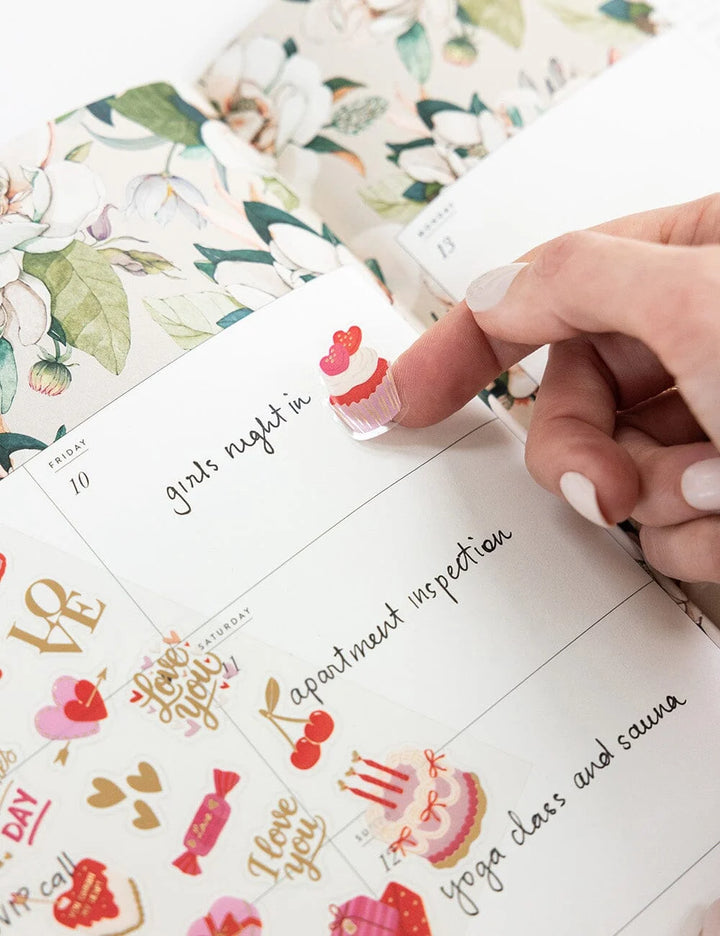 MONDAY
13
FRIDAY
10
girls night in
SATURDAY
11
apartment inspection
SUNDAY
12
yoga class and sauna
LOVE
Love
you
DAY
I love
you
call